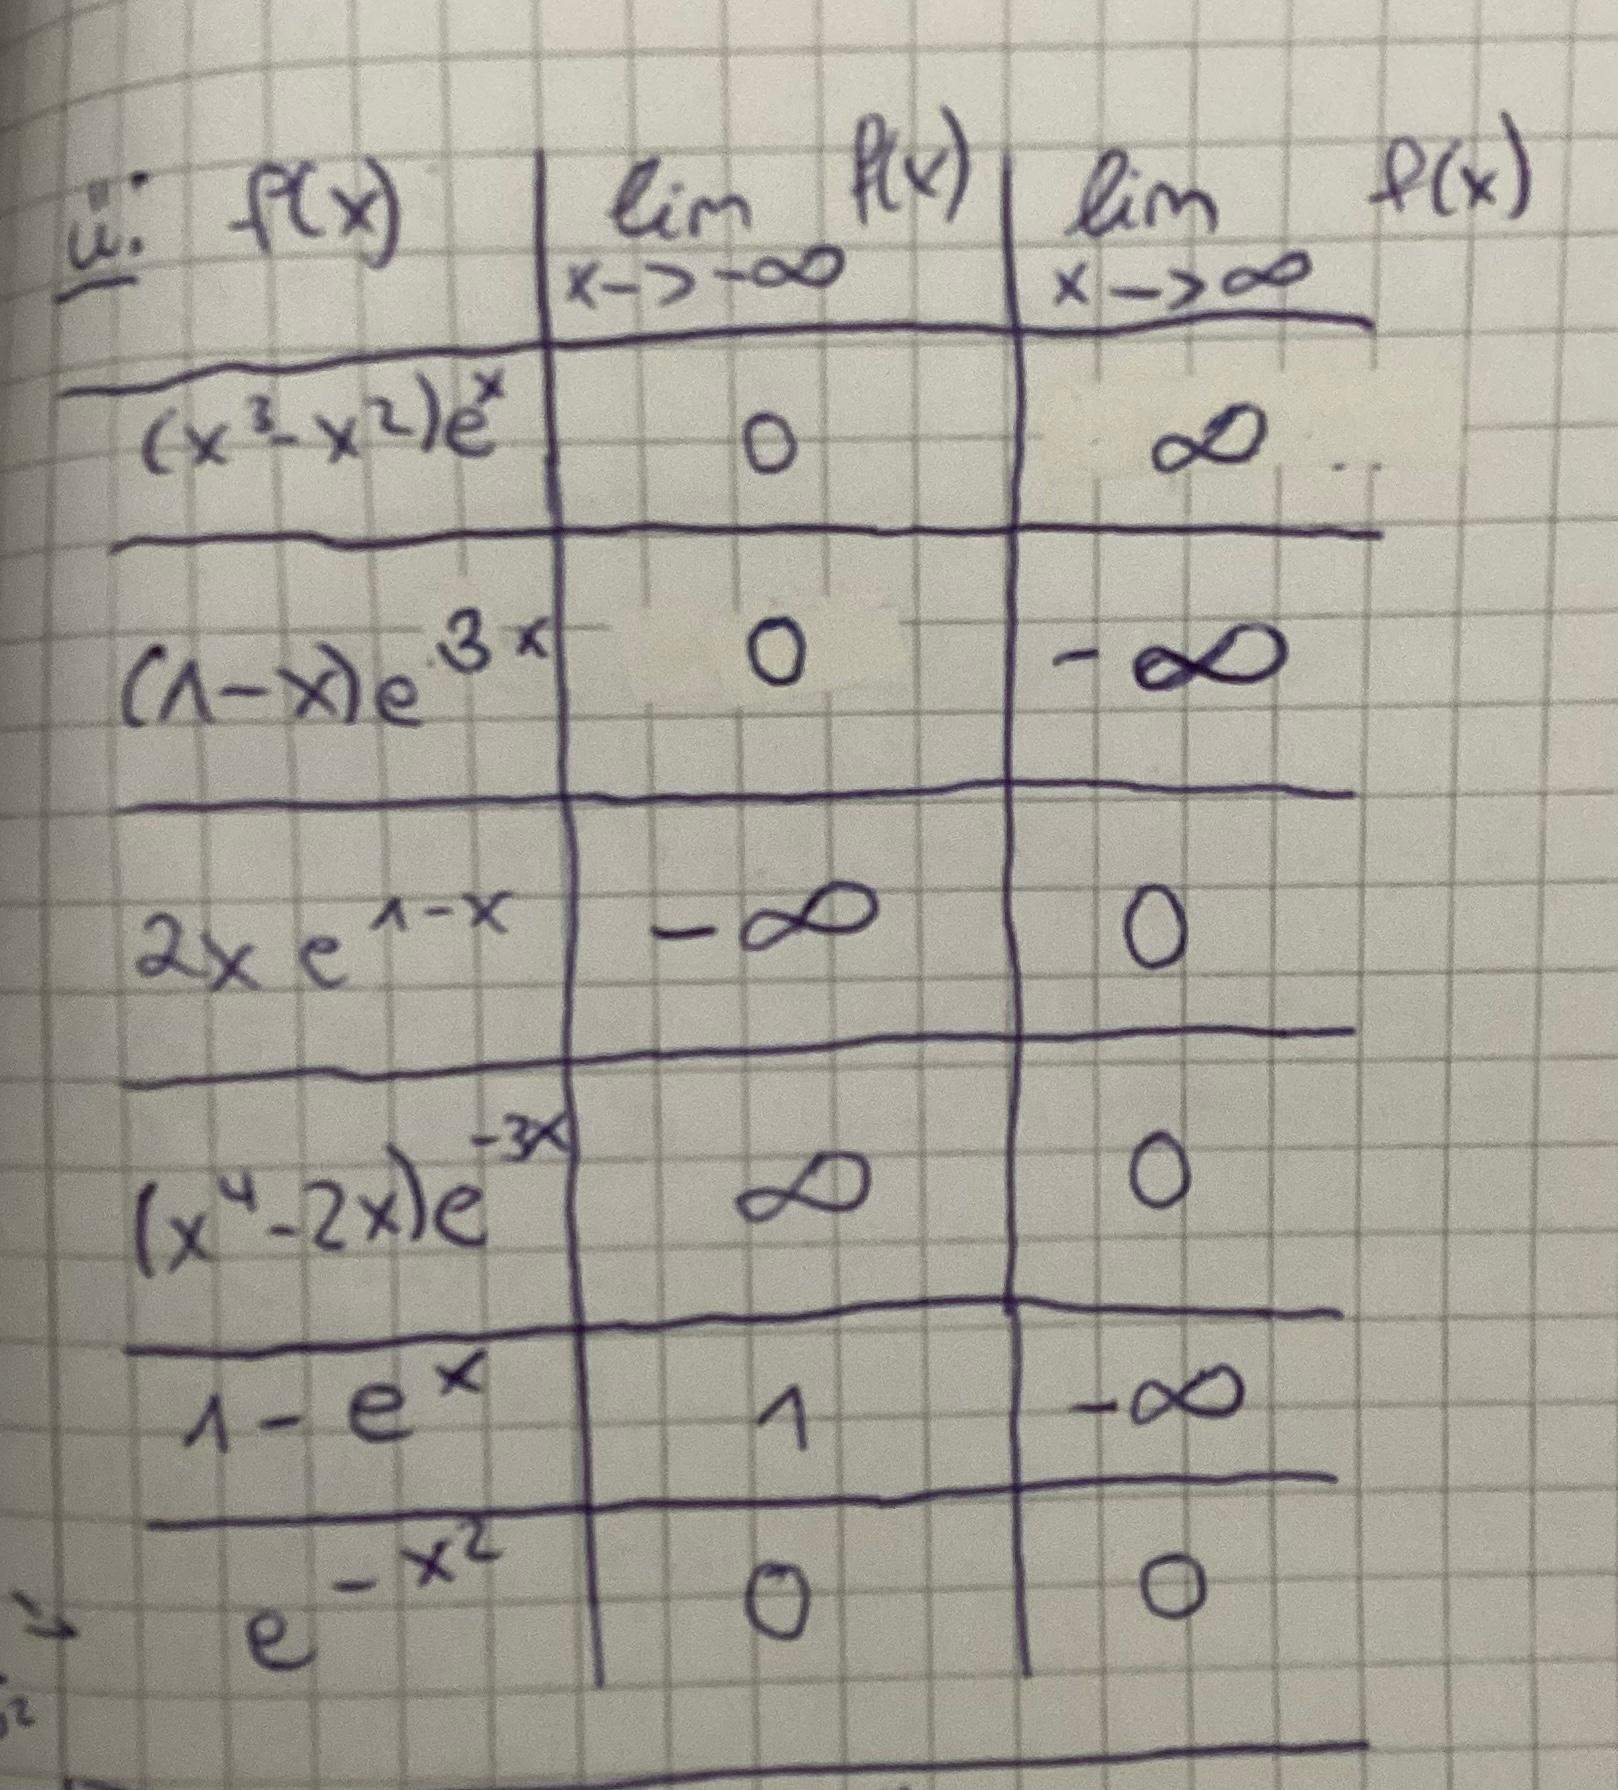 ü: f(x) | lim x->-∞ f(x) | lim x->∞ f(x)
(x³-x²)eˣ | 0 | ∞
(1-x)e³ˣ | 0 | -∞
2x e¹⁻ˣ | -∞ | 0
(x⁴-2x)e⁻³ˣ | ∞ | 0
1-eˣ | 1 | -∞
e^(-x²) | 0 | 0